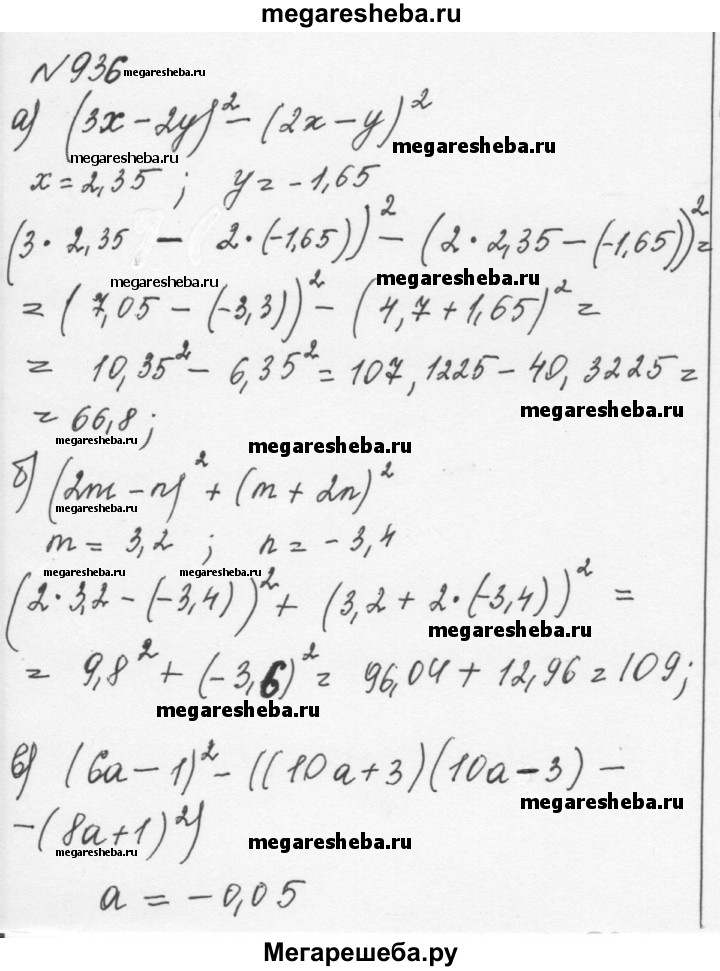 megaresheba.ru
№936 megaresheba.ru
а) (3x - 2y)² - (2x - y)²
megaresheba.ru megaresheba.ru
x = 2,35 ; y = -1,65
(3 · 2,35 - 2 · (-1,65))² - (2 · 2,35 - (-1,65))² =
megaresheba.ru megaresheba.ru
= (7,05 - (-3,3))² - (4,7 + 1,65)² =
= 10,35² - 6,35² = 107,1225 - 40,3225 =
megaresheba.ru
= 66,8 ;
megaresheba.ru megaresheba.ru
б) (2m - n)² + (m + 2n)²
megaresheba.ru megaresheba.ru
m = 3,2 ; n = -3,4
megaresheba.ru megaresheba.ru
(2 · 3,2 - (-3,4))² + (3,2 + 2 · (-3,4))² =
megaresheba.ru
= 9,8² + (-3,6)² = 96,04 + 12,96 = 109 ;
megaresheba.ru
в) (6a - 1)² - ((10a + 3)(10a - 3) -
megaresheba.ru
- (8a + 1)²)
megaresheba.ru megaresheba.ru
a = -0,05
Мегарешеба.ру